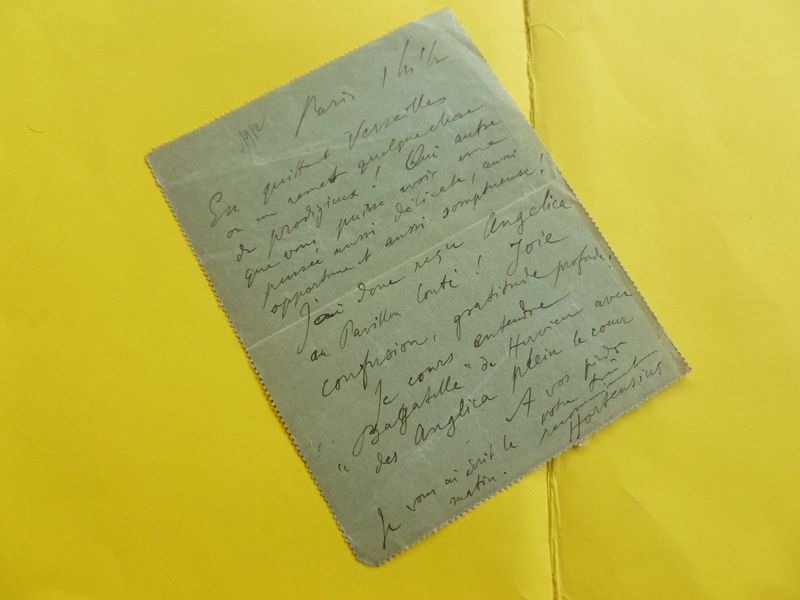 Paris
En quittant Versailles
on me remet quelque chose
de prodigieux ! Qui autre
que vous puisse avoir une
pensée aussi délicate, aussi
opportune et aussi somptueuse !
J'ai donc reçu Angelica
au Pavillon Conti ! Joie
confusion, gratitude profonde,
Je cours entendre
"Bagatelle" de Hervieu avec
des Anglica plein le cœur
A vos pieds
votre très
reconnaissant
Hortensius
Je vous ai écrit le
matin.